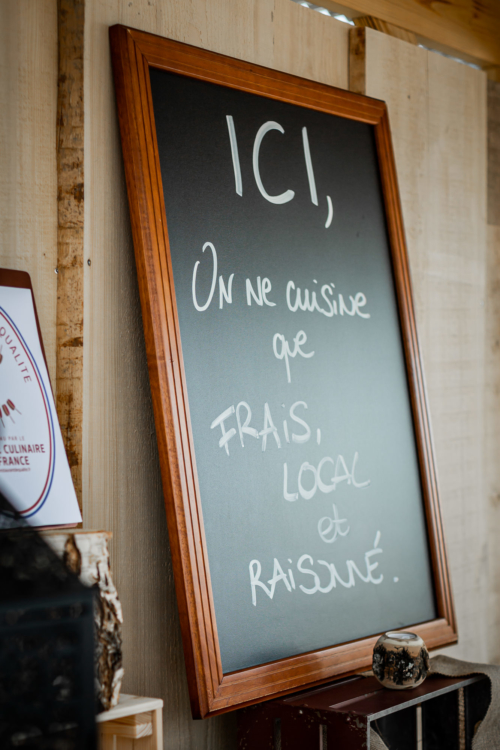 ICI,
On ne cuisine
que
FRAIS,
LOCAL
et
RAISONNÉ.
QUALITÉ
PAR LE
CULINAIRE
FRANCE